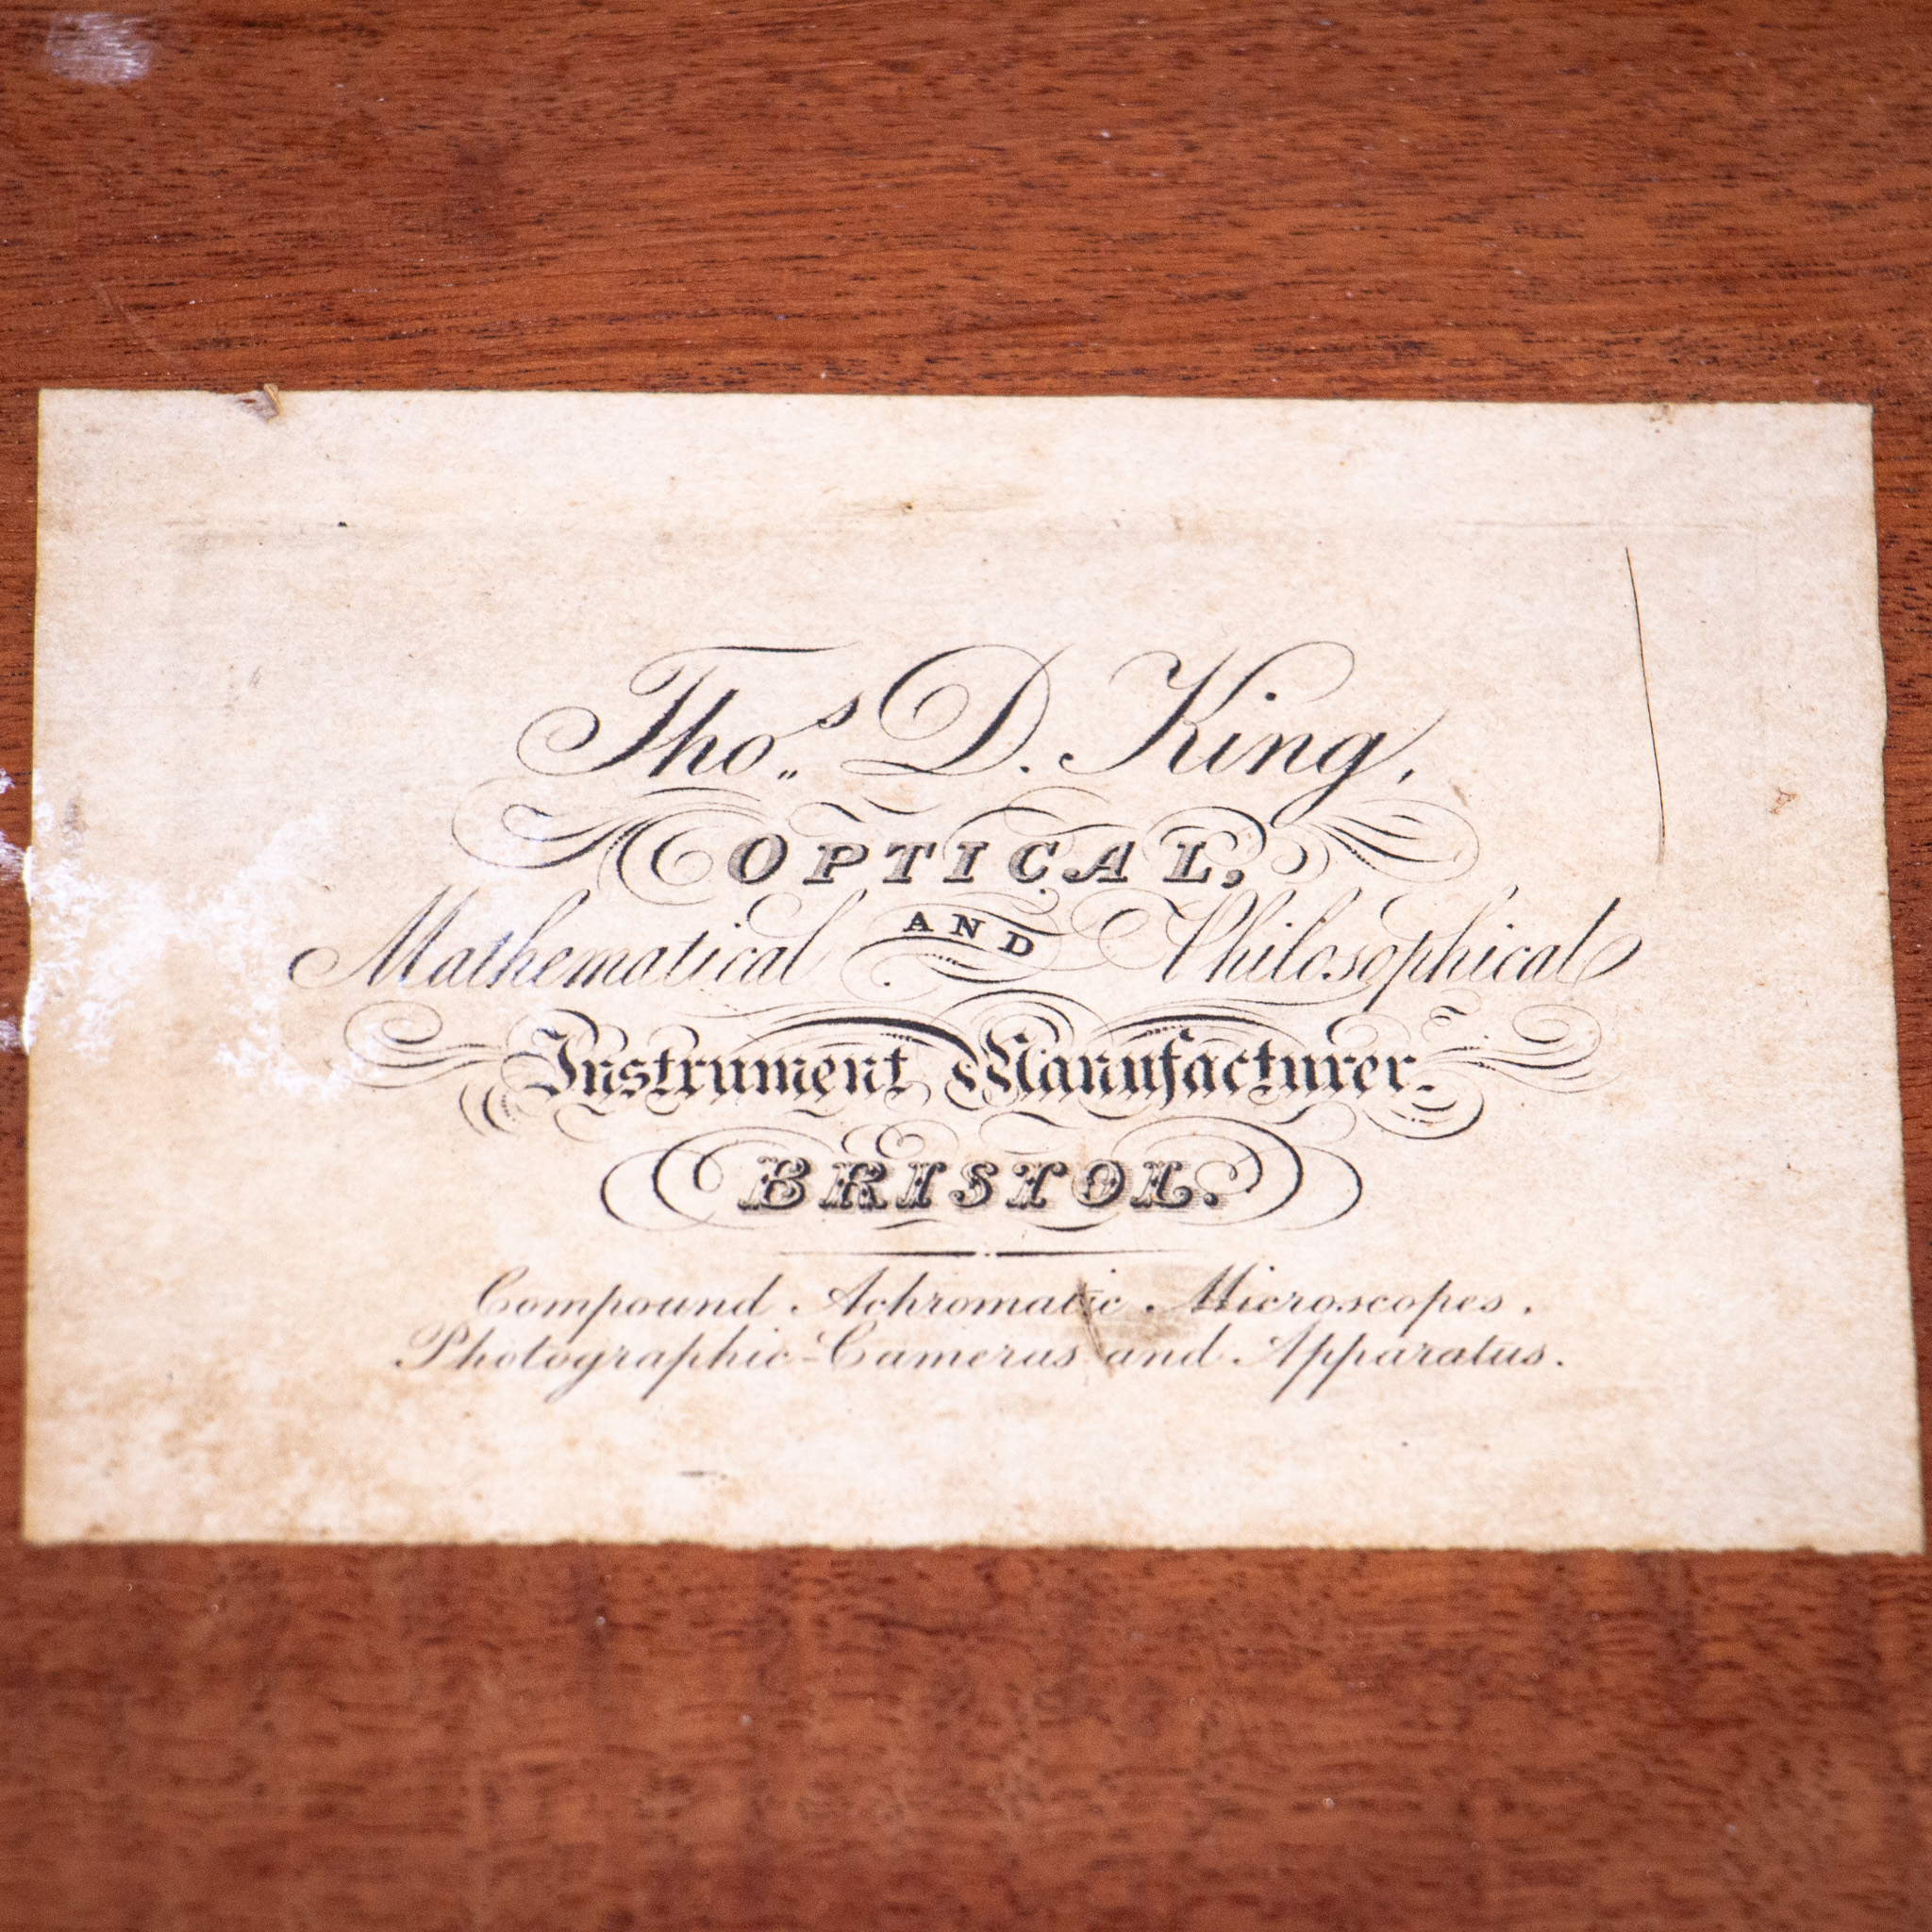 Thos. D. King,
OPTICAL,
Mathematical AND Philosophical
Instrument Manufacturer.
BRISTOL.
Compound Achromatic Microscopes.
Photographic-Cameras and Apparatus.